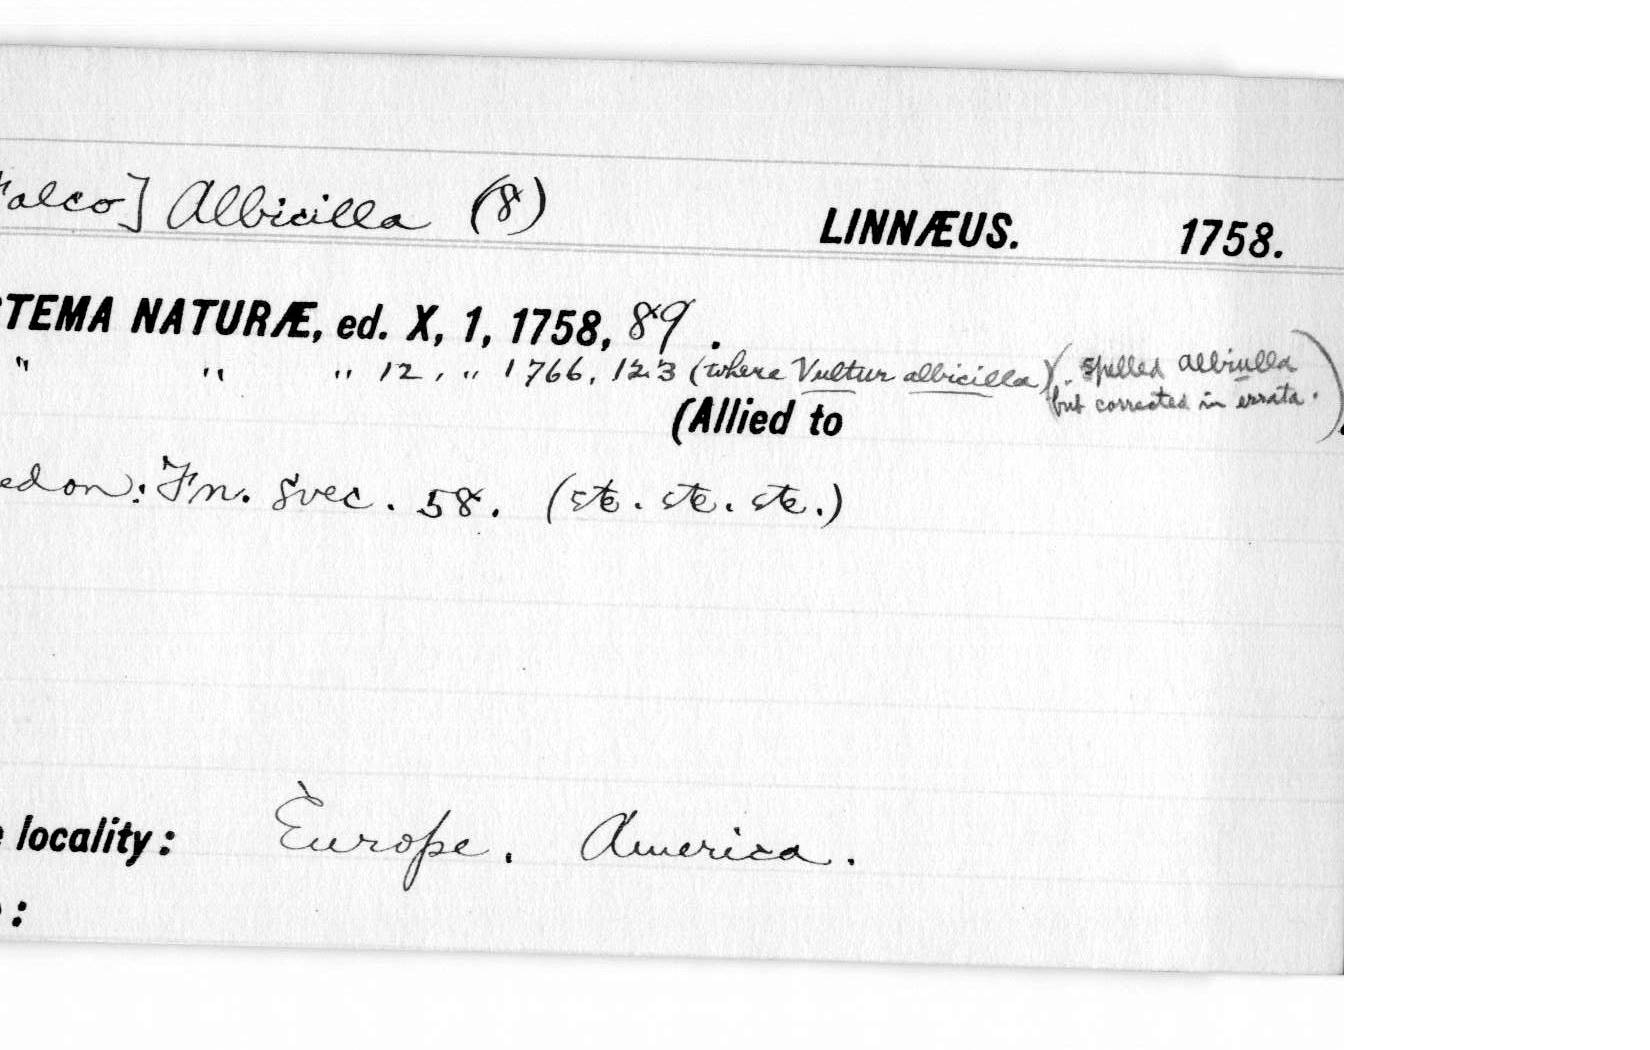 Falco] Albicilla (8) LINNÆUS. 1758.
TEMA NATURÆ, ed. X, 1, 1758, 89.
" " " 12, " 1766, 123 (where Vultur albicilla). (spelled albiulla
but corrected in errata.)
(Allied to
ed on: Fn. Svec. 58. (etc. etc. etc.)
locality: Europe. America.
: